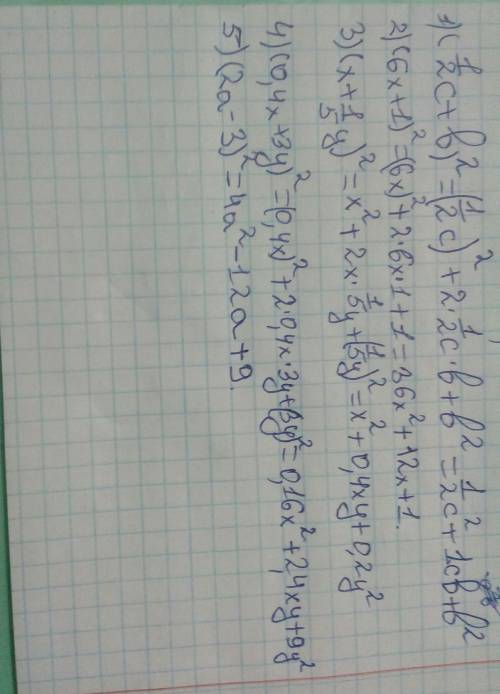 1) (1/2c + b)² = (1/2c)² + 2·1/2c·b + b² = 1/2c² + 1cb + b²
2) (6x+1)² = (6x)² + 2·6x·1 + 1 = 36x² + 12x + 1.
3) (x + 1/5y)² = x² + 2x·1/5y + (1/5y)² = x² + 0,4xy + 0,2y²
4) (0,4x + 3y)² = (0,4x)² + 2·0,4x·3y + (3y)² = 0,16x² + 2,4xy + 9y²
5) (2a - 3)² = 4a² - 12a + 9.